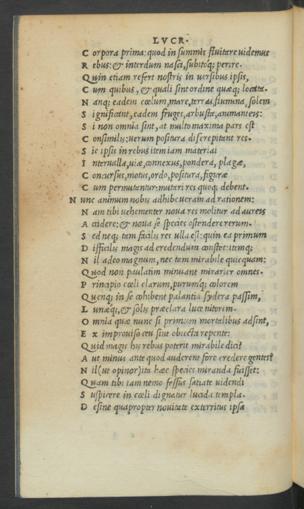 LVCR.
C orpora prima: quod in summis fluitare uidemus
R ebus: & interdum nasci, subitoq; perire.
Q uin etiam refert nostris in uersibus ipsis,
C um quibus, & quali sint ordine quæq; locata.
N anq; eadem cœlum, mare, terras, flumina, solem
S ignificant, eadem fruges, arbusta, animanteis:
S i non omnia sint, at multo maxima pars est
C onsimilis: uerum positura discrepitent res.
S ic ipsis in rebus item iam materiai
I nterualla, uiæ, connexus, pondera, plagæ,
C oncursus, motus, ordo, positura, figuræ
C um permutantur: mutari res quoq; debent.
N unc animum nobis adhibe ueram ad rationem:
N am tibi uehementer noua res molitur ad aureis
A ccidere; & noua se species ostendere rerum.
S ed neq; tam facilis res ulla est: quin ea primum
D ifficilis magis ad credendum constet: itemq;
N il adeo magnum, nec tam mirabile quicquam:
Q uod non paulatim minuant mirarier omnes.
P rincipio cœli clarum, purumq; colorem
Q uemq; in se cohibent palantia sydera passim,
L unæq;, & solis præclara luce nitorem.
O mnia quæ nunc si primum mortalibus adsint,
E x improuiso ceu sint obiecta repente:
Q uid magis his rebus poterit mirabile dici?
A ut minus ante quod auderent fore credere gentes?
N il (ut opinor) ita hæc species miranda fuisset:
Q uam tibi iam nemo fessus satiate uidendi
S uspicere in cœli dignatur lucida templa.
D esine quapropter nouitate exterritus ipsa